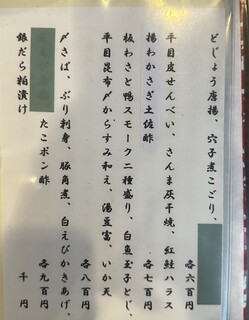 どじょう唐揚、穴子煮こごり、
各六百円
平目皮せんべい、さんま灰干焼、紅鮭ハラス
揚わかさぎ土佐酢
各七百円
板わさと鴨スモーク二種盛り、白魚玉子とじ、
平目昆布〆からすみ和え、湯豆富、いか天
各八百円
〆さば、ぶり刺身、豚角煮、白えびかきあげ、
たこポン酢
各九百円
銀だら粕漬け
千円